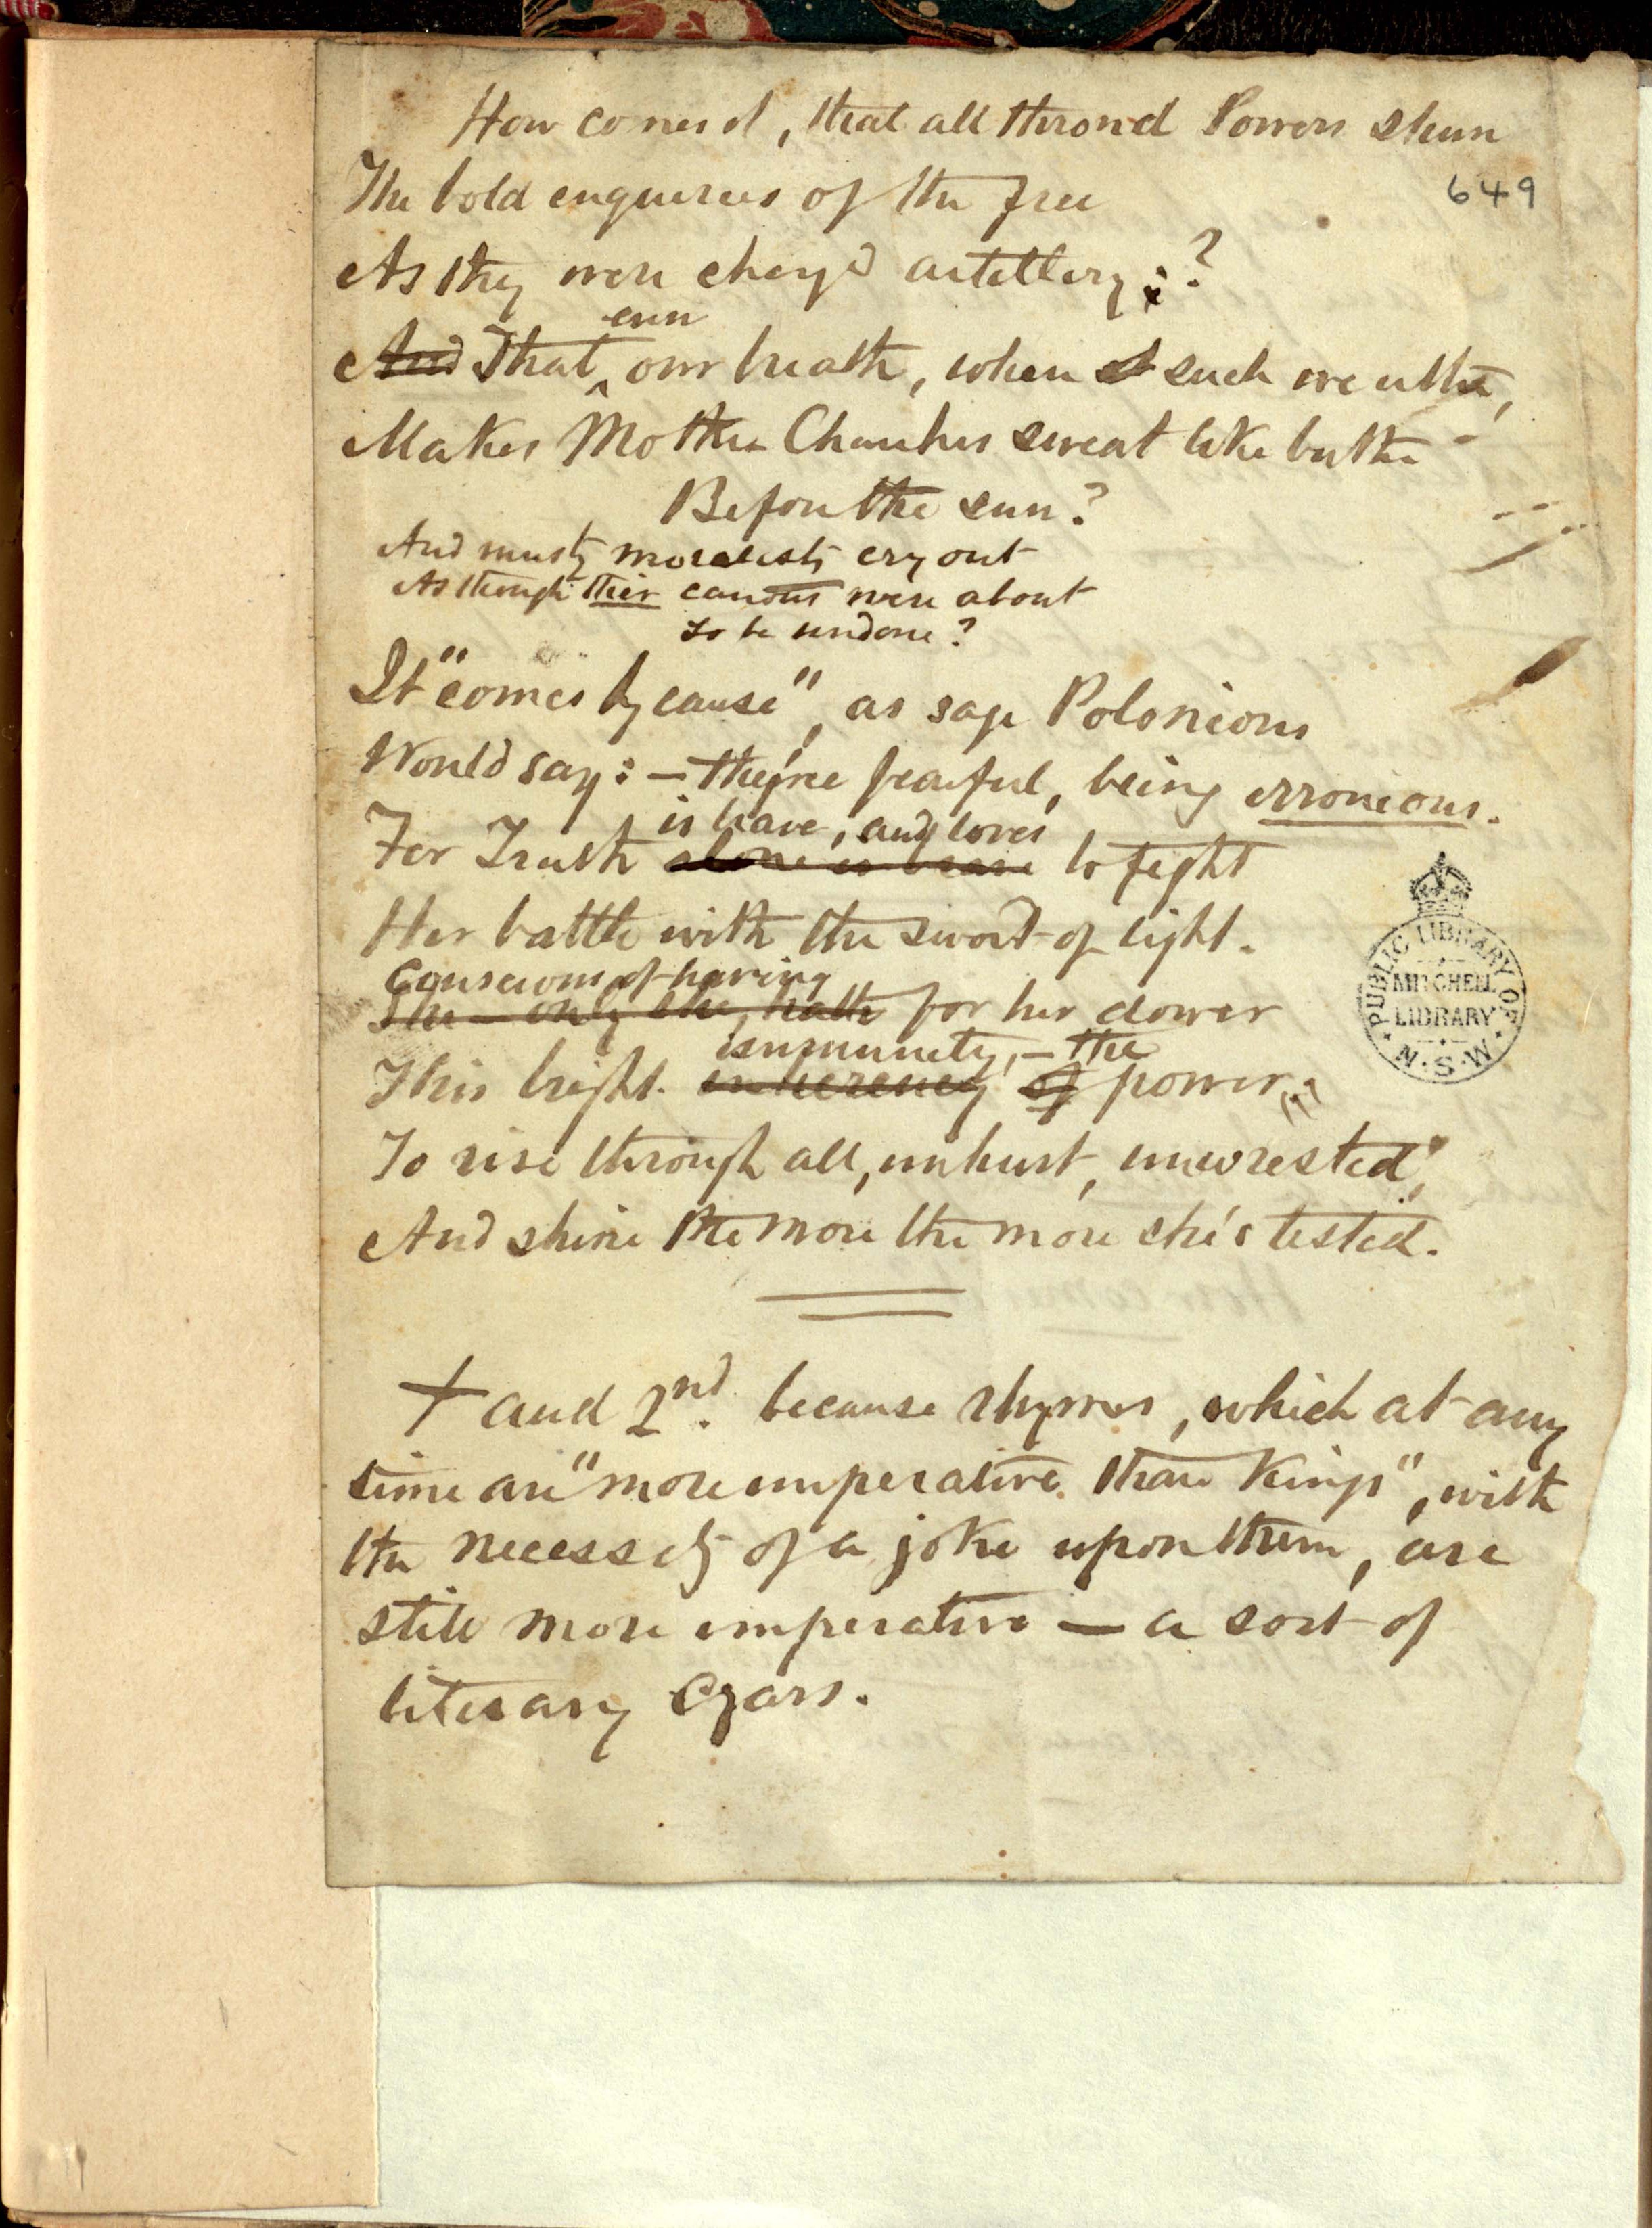 How comes it, that all thron'd Powers shun
649
The bold enquiries of the free
As they were charg'd artillery;?
even
And That our breath, when such we utter,
Makes Mother Churches sweat like butter
Before the sun?
And musty moralists cry out
As though their candour were about
To be undone?
It "comes by cause", as sage Polonious
Would say: — they're fearful, being erronious.
is brave, and loves
For Truth alone is brave to fight
Her battle with the sword of light.
Conscious of having
She — only she, hath for her dower
immunity, — the
This bright inherency of power;
To rise through all, unhurt, unwrested,
And shine the more the more she's tested.
+ and 2nd. because rhymes, which at any
time are "more imperative than Kings", with
the necessity of a joke upon them, are
still more imperative — a sort of
literary Czars.
PUBLIC LIBRARY OF
MITCHELL
LIBRARY
N.S.W.